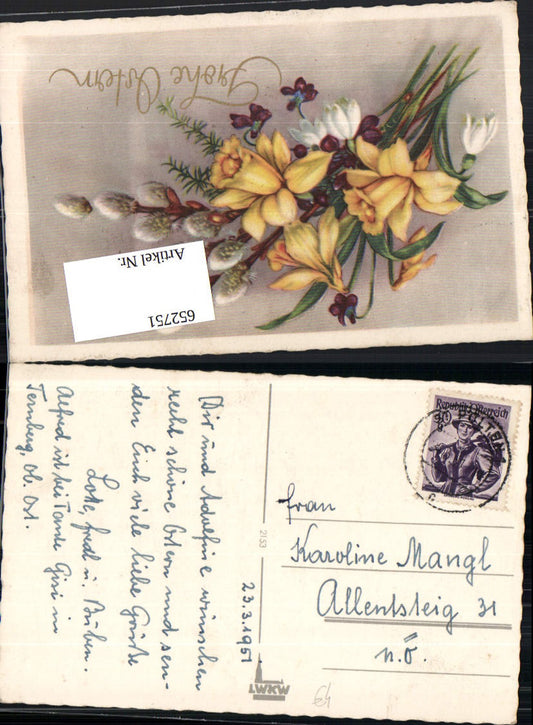 Frohe Ostern
Artikel Nr.
652751
Dir und Adolfine wünschen
recht schöne Ostern und sen-
den Euch viele liebe Grüße
Lotte, Fredl u. Buben.
Alfred ist bei Tante Gini in
Ternberg, Ob. Öst.
23.3.1951
2153
Republik Österreich
Frau
Karoline Mangl
Allentsteig 31
n.ö.